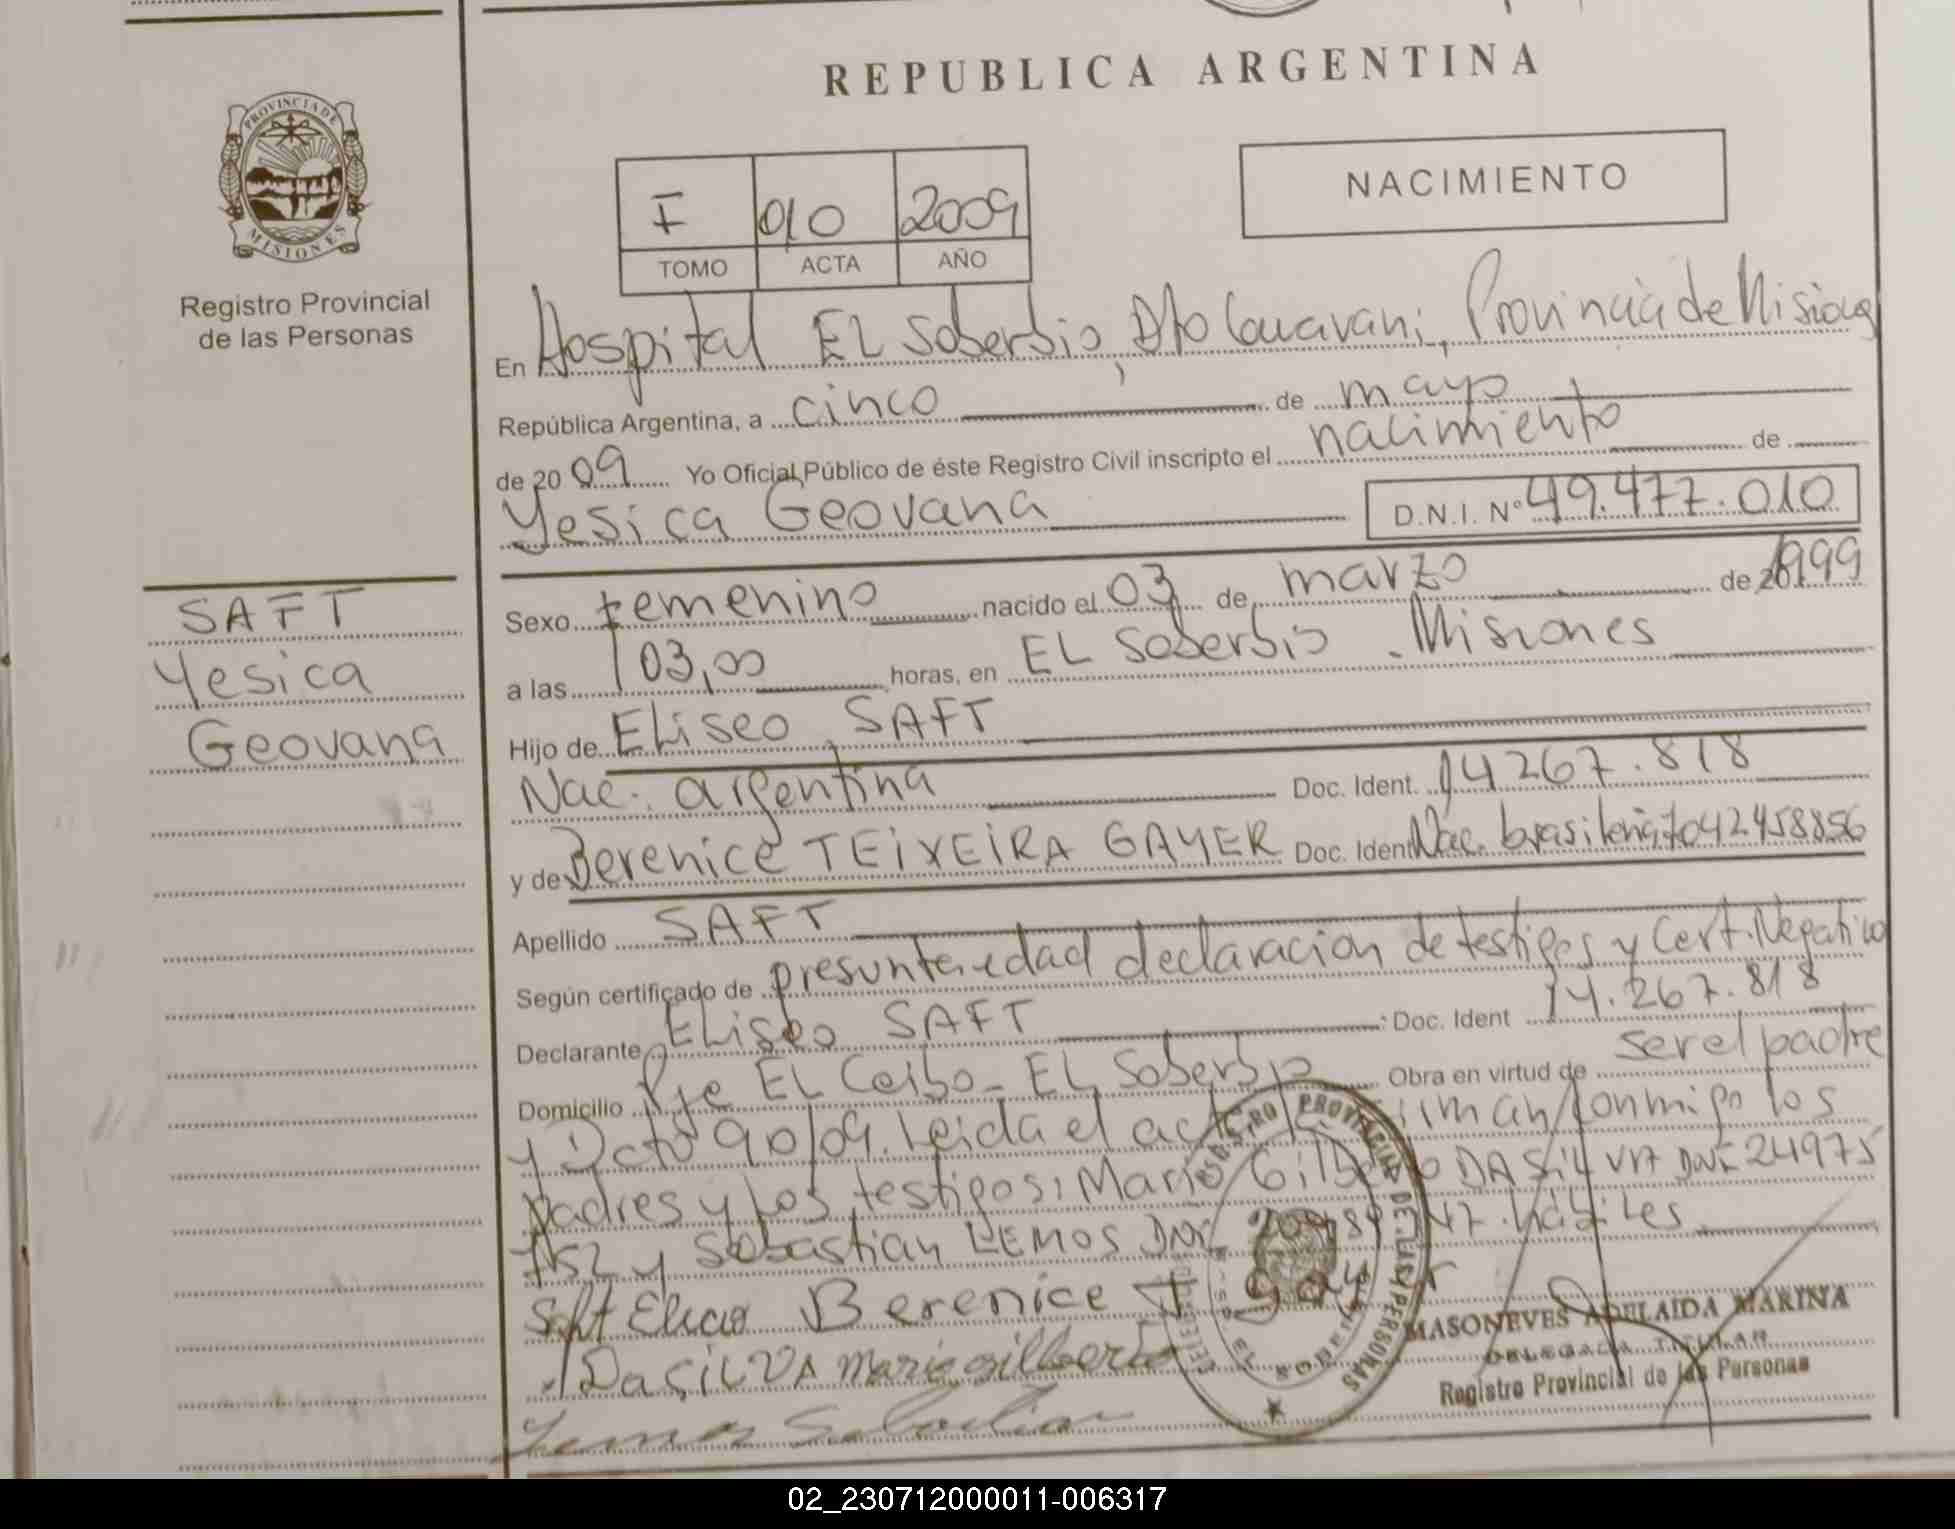 REPUBLICA ARGENTINA
PROVINCIA DE MISIONES
Registro Provincial
de las Personas
NACIMIENTO
I 010 2009
TOMO ACTA AÑO
En Hospital EL Soberbio, Dto Guarani, Provincia de Misiones
República Argentina, a cinco de mayo
de 2009 Yo Oficial Público de éste Registro Civil inscripto el nacimiento de
Yesica Geovana D.N.I. Nº 49.477.010
SAFT
Yesica
Geovana
Sexo femenino nacido el 03 de marzo de 1999
a las 03,00 horas, en EL Soberbio - Misiones
Hijo de Eliseo SAFT
Nac. argentina Doc. Ident. 14.267.818
y de Berenice TEIXEIRA GAYER Doc. Ident. Nac. brasileña 7042458856
Apellido SAFT
Según certificado de presunta edad declaración de testigos y Cert. Negativo
Declarante Eliseo SAFT Doc. Ident 14.267.818
Domicilio Pje EL Ceibo - EL Soberbio Obra en virtud de ser el padre
y Dcto 90/09. Leida el acta firman conmigo los
padres y los testigos: Mario Gilberto DA SILVA DNI 24975
y Sebastian LEMOS DNI hábiles
Saft Eliceo Berenice T gayer
Da SiLVA Mario gilberto
Lemos Sebastian
REGISTRO PROVINCIAL DE LAS PERSONAS
EL SOBERBIO
MASONEVES ADELAIDA MARINA
DELEGADA TITULAR
Registro Provincial de las Personas
02_230712000011-006317